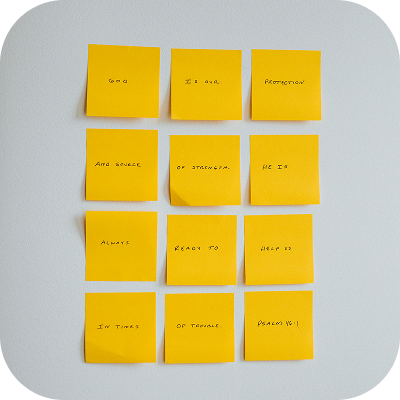 GOD IS OUR PROTECTION
AND SOURCE OF STRENGTH. HE IS
ALWAYS READY TO HELP US
IN TIMES OF TROUBLE. PSALM 46:1